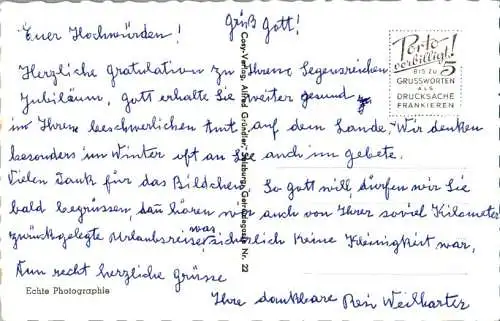 Euer Hochwürden! Grüß Gott!
Herzliche Gratulation zu Ihrem Segensreichen
Jubiläum, Gott erhalte Sie weiter gesund
in Ihrem beschwerlichen Amt auf dem Lande, Wir denken
besonders im Winter oft an Sie auch im Gebete.
Vielen Dank für das Bildchen. So Gott will, dürfen wir Sie
bald begrüssen, dan hören wir auch von Ihrer soviel Kilometer
zurückgelegte Urlaubsreise, was sicherlich keine Kleinigkeit war,
Nun recht herzliche Grüsse
Ihre dankbare Resi Weilharter
Porto
verbilligt!
BIS ZU 5
GRUSSWORTEN
ALS
DRUCKSACHE
FRANKIEREN
Cosy-Verlag, Alfred Gründler, Salzburg, Getreidegasse Nr. 22
Echte Photographie